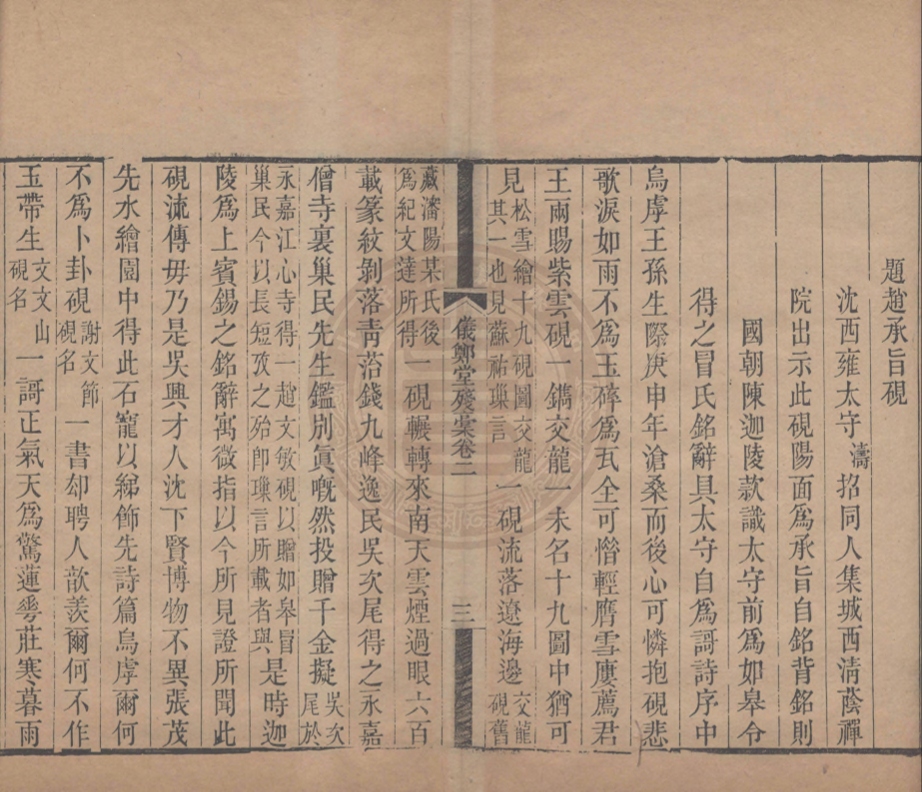 題趙承旨硯
沈西雍太守濤招同人集城西清蔭禪
院出示此硯陽面為承旨自銘背銘則
國朝陳迦陵款識太守前為如皋令
得之冒氏銘辭具太守自為謌詩序中
烏虖王孫生際庚申年滄桑而後心可憐抱硯悲
歌淚如雨不為玉碎為瓦全可惜輕膺雪廔薦君
王兩賜紫雲硯一鐫交龍一未名十九圖中猶可
見松雪繪十九硯圖交龍其一也見蘇祐瓅言一硯流落遼海邊交龍硯舊
儀鄭堂殘稾卷二
三
藏瀋陽某氏後為紀文達所得一硯輾轉來南天雲煙過眼六百
載篆紋剝落青菭錢九峰逸民吳次尾得之永嘉
僧寺裏巢民先生鑑別眞嘅然投贈千金擬吳次尾於
永嘉江心寺得一趙文敏硯以贈如皋冒巢民今以長短攷之殆卽瓅言所載者與是時迦
陵為上賓錫之銘辭寓微指以今所見證所聞此
硯流傳毋乃是吳興才人沈下賢博物不異張茂
先水繪園中得此石寵以綈飾先詩篇烏虖爾何
不為卜卦硯謝文節硯名一書却聘人歆羡爾何不作
玉帶生文文山硯名一謌正氣天為驚蓮蕐莊寒暮雨